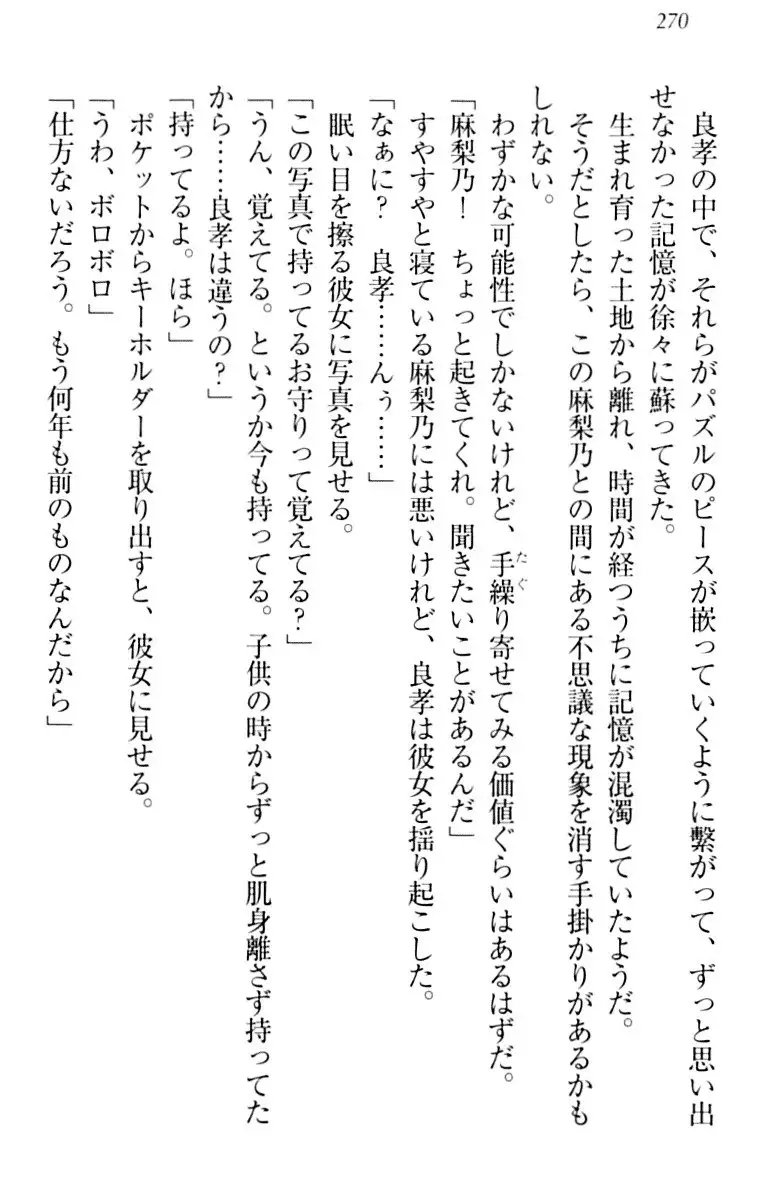 270
良孝の中で、それらがパズルのピースが嵌っていくように繋がって、ずっと思い出
せなかった記憶が徐々に蘇ってきた。
生まれ育った土地から離れ、時間が経つうちに記憶が混濁していたようだ。
そうだとしたら、この麻梨乃との間にある不思議な現象を消す手掛かりがあるかも
しれない。
わずかな可能性でしかないけれど、手繰り寄せてみる価値ぐらいはあるはずだ。
たぐ
「麻梨乃！　ちょっと起きてくれ。聞きたいことがあるんだ」
すやすやと寝ている麻梨乃には悪いけれど、良孝は彼女を揺り起こした。
「なぁに？　良孝……んぅ……」
眠い目を擦る彼女に写真を見せる。
「この写真で持ってるお守りって覚えてる？」
「うん、覚えてる。というか今も持ってる。子供の時からずっと肌身離さず持ってた
から……良孝は違うの？」
「持ってるよ。ほら」
ポケットからキーホルダーを取り出すと、彼女に見せる。
「うわ、ボロボロ」
「仕方ないだろう。もう何年も前のものなんだから」